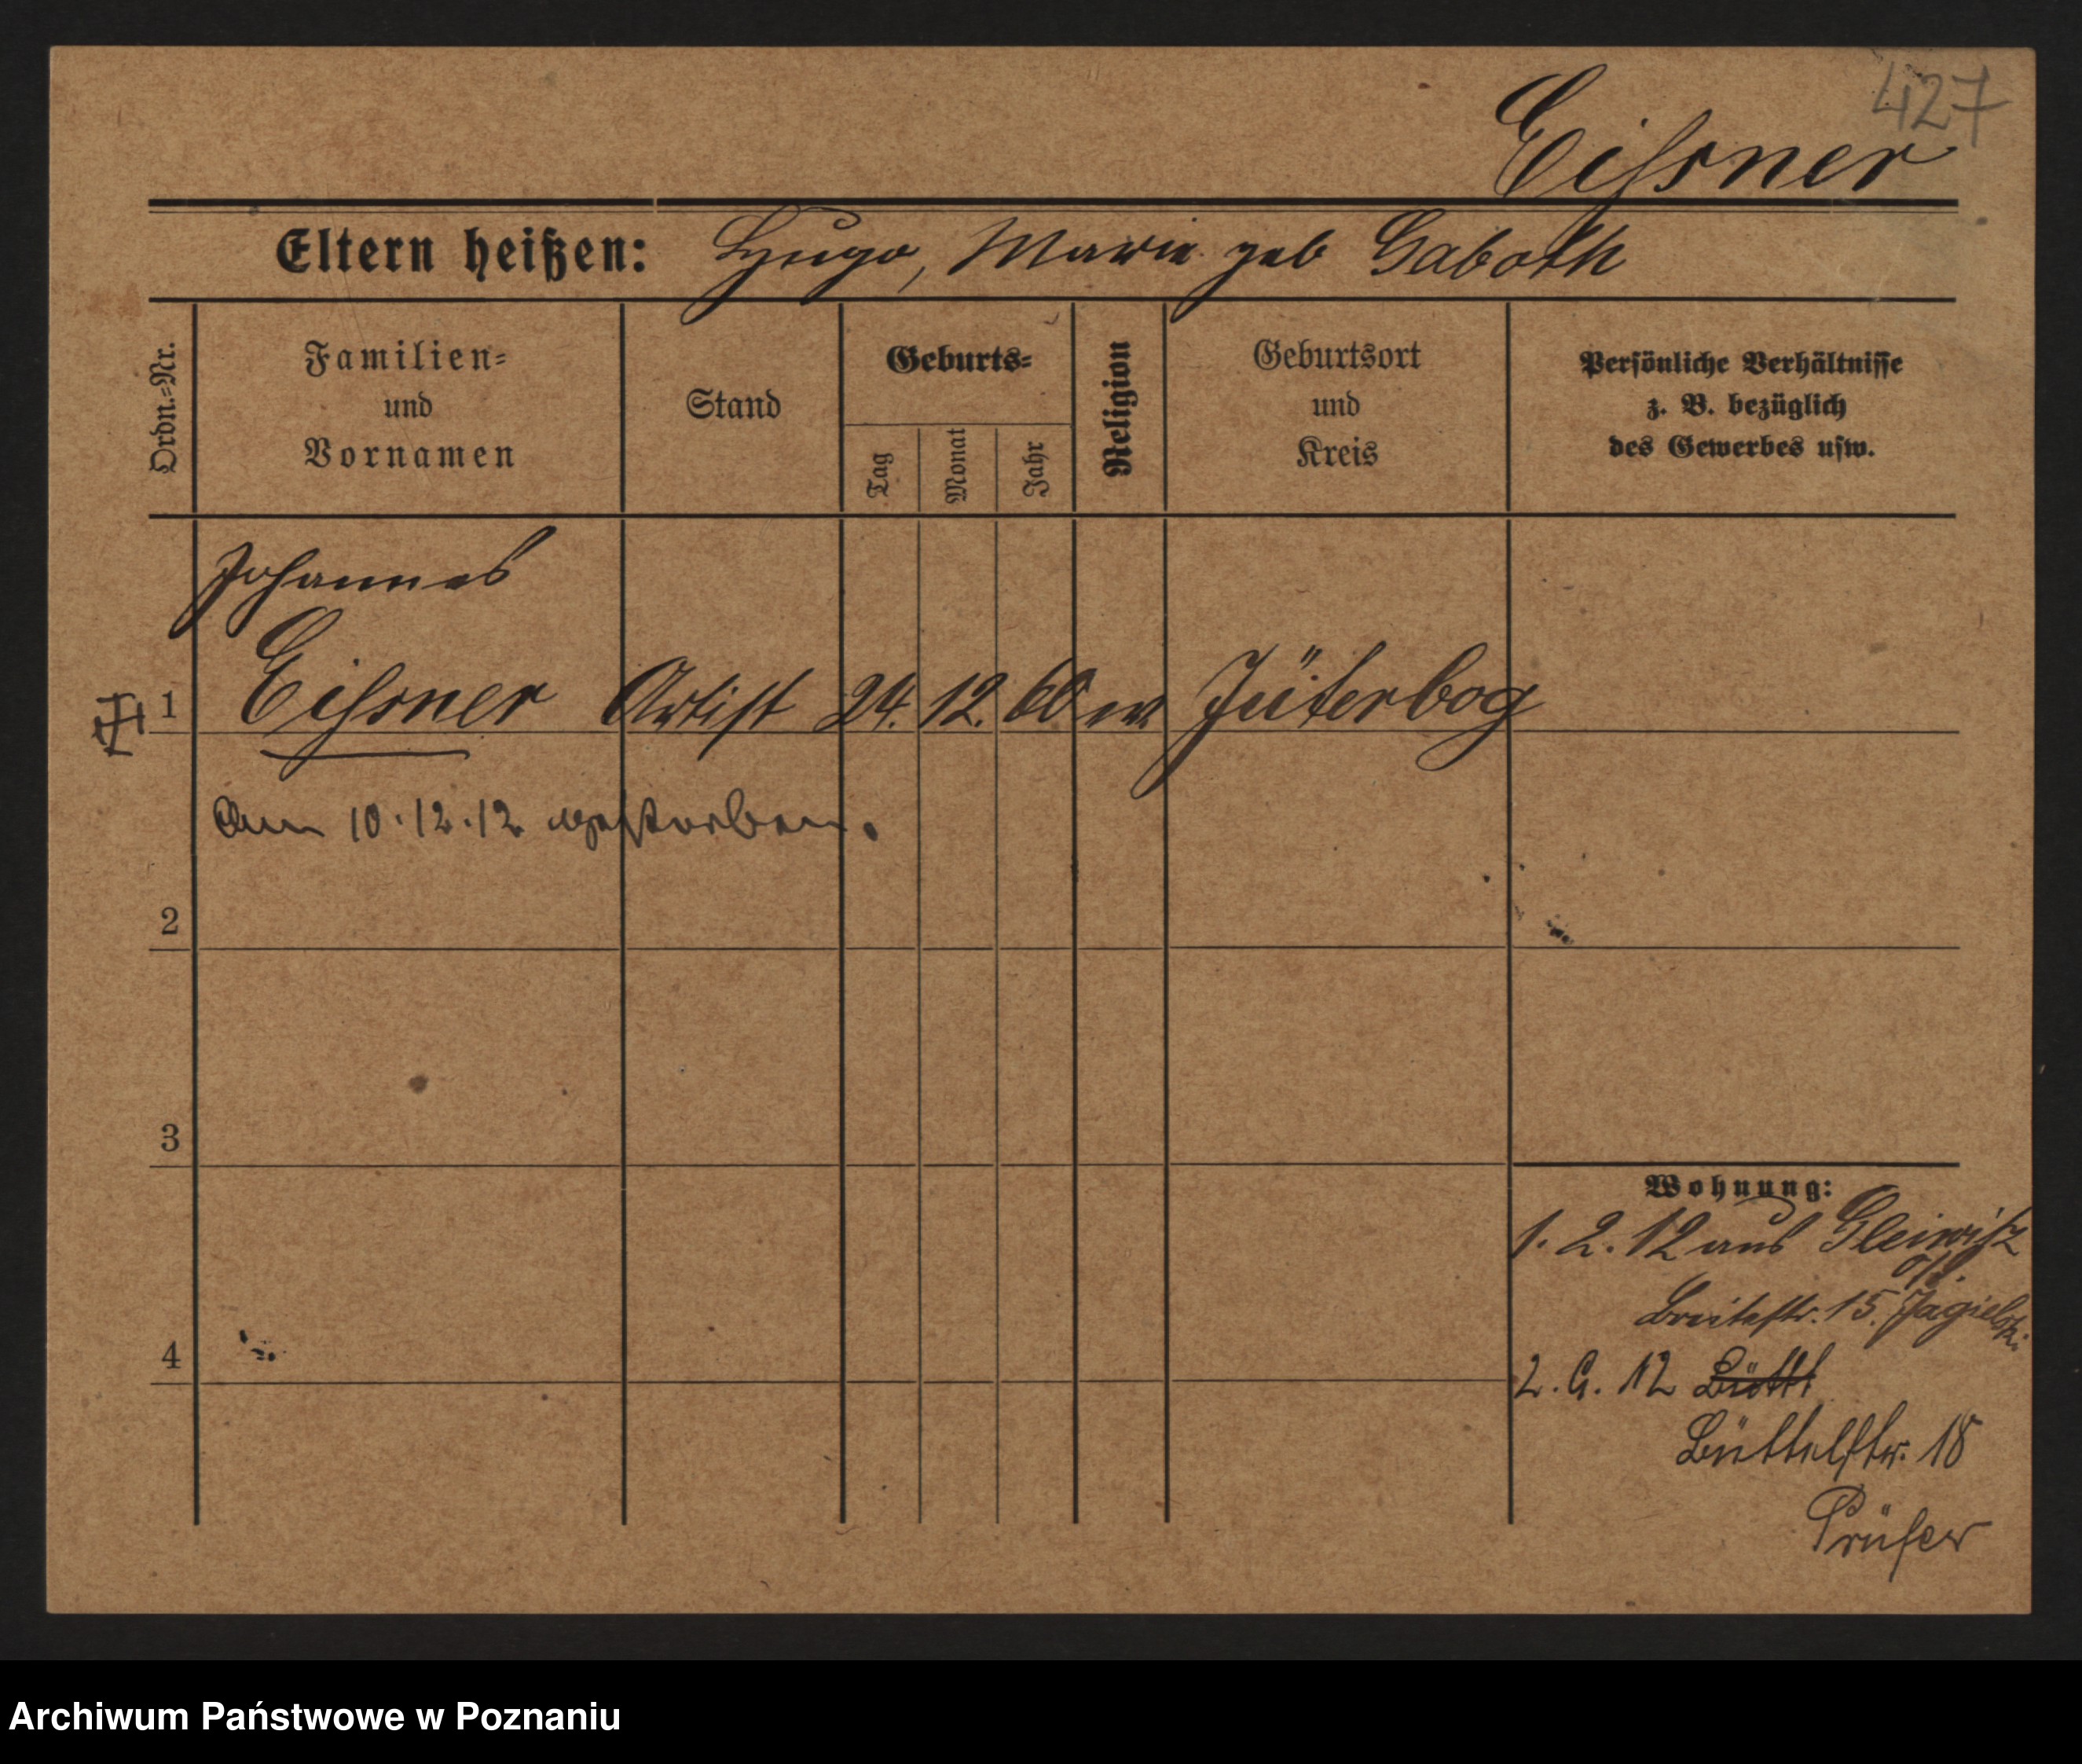 427
Eissner
Eltern heißen: Hugo, Marie geb Gaboth
Ordn.=Nr.
Familien=
und
Vornamen
Stand
Geburts=
Tag
Monat
Jahr
Religion
Geburtsort
und
Kreis
Persönliche Verhältnisse
z. B. bezüglich
des Gewerbes usw.
Johannes
1 Eissner Artist 24. 12. 60 Jüterbog
Am 10.12.12 gestorben.
2
3
4
Wohnung:
1. 2. 12 aus Gleiwitz
Breitestr. 15. Jagielski
2. G. 12 Bütt
Büttelstr. 18
Prüfer
Archiwum Państwowe w Poznaniu